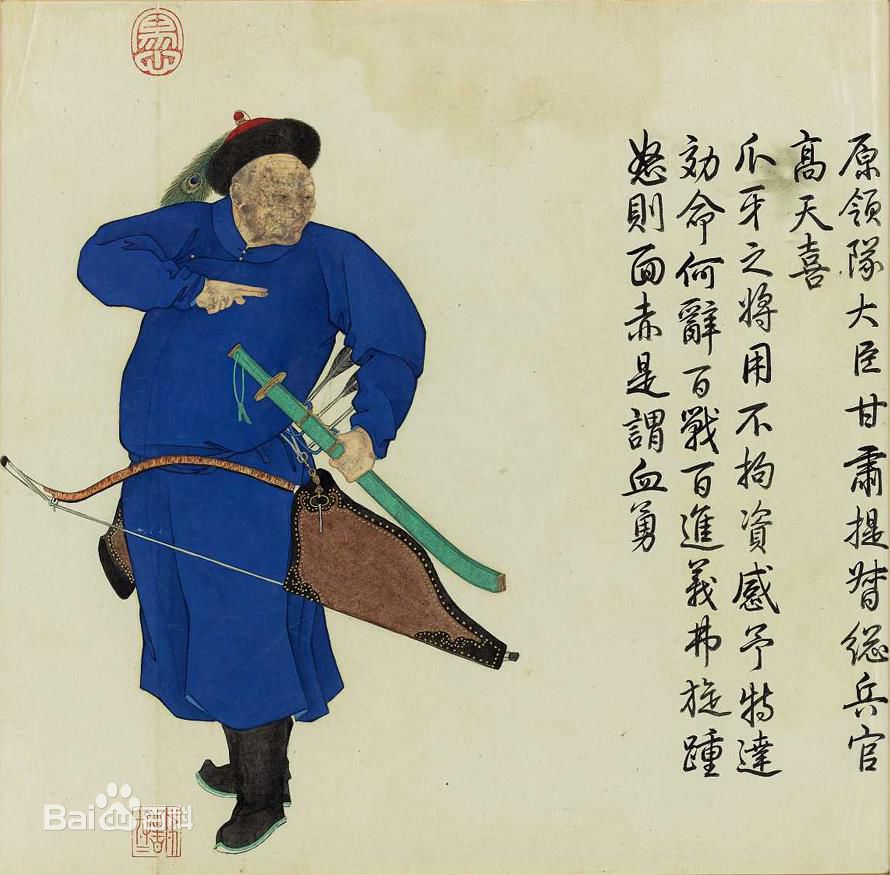 原領隊大臣甘肅提督總兵官
高天喜
爪牙之將用不拘資感予特達
効命何辭百戰百進義弗旋踵
怒則面赤是謂血勇
Baidu百科